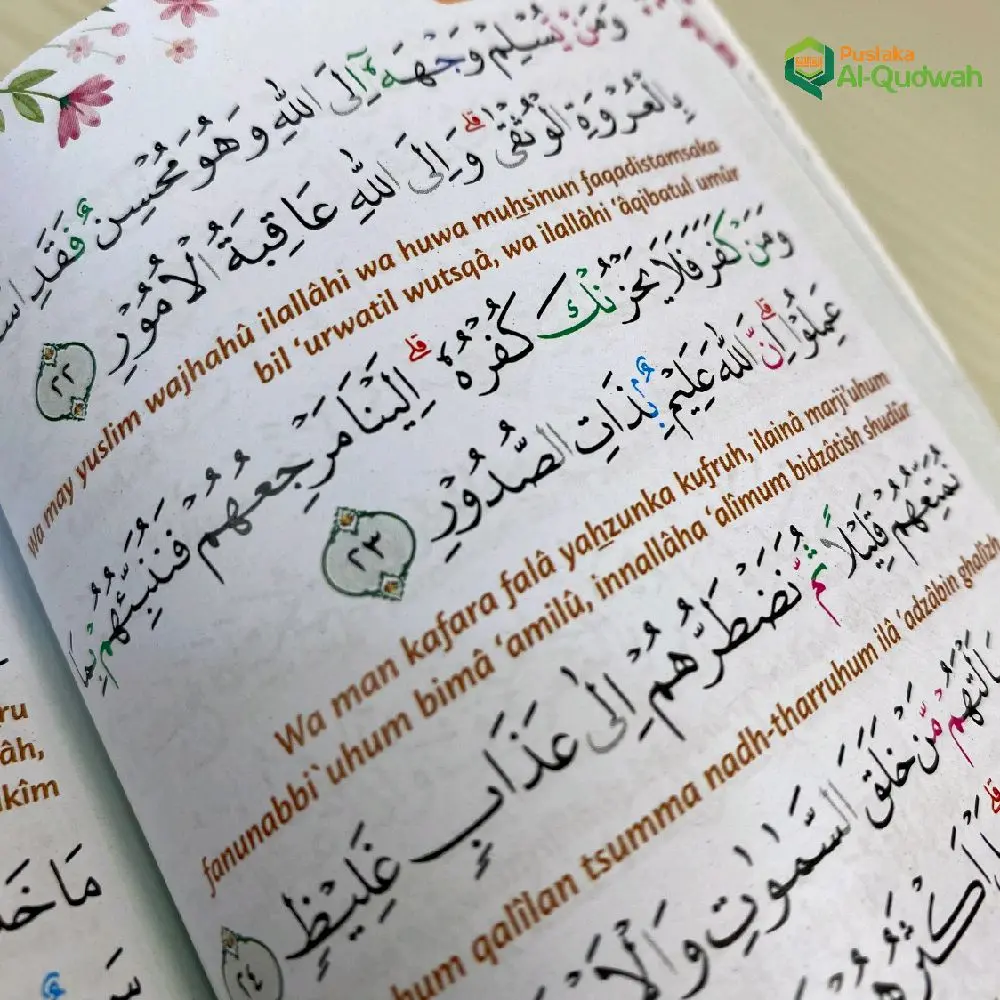 Puslaka
Al-Qudwah
وَمَنْ يُّسْلِمْ وَجْهَهٗٓ اِلَى اللّٰهِ وَهُوَ مُحْسِنٌ فَقَدِ
بِالْعُرْوَةِ الْوُثْقٰىۗ وَاِلَى اللّٰهِ عَاقِبَةُ الْاُمُوْرِ ٢٢
Wa may yuslim wajhahû ilallâhi wa huwa muhsinun faqadistamsaka
bil ‘urwatil wutsqâ, wa ilallâhi ‘âqibatul umûr
وَمَنْ كَفَرَ فَلَا يَحْزُنْكَ كُفْرُهٗۗ اِلَيْنَا مَرْجِعُهُمْ فَنُنَبِّئُهُمْ بِمَا
عَمِلُوْاۗ اِنَّ اللّٰهَ عَلِيْمٌۢ بِذَاتِ الصُّدُوْرِ ٢٣
Wa man kafara falâ yahzunka kufruh, ilainâ marji‘uhum
fanunabbi`uhum bimâ ‘amilû, innallâha ‘alîmum bidzâtish shudûr
نُمَتِّعُهُمْ قَلِيْلًا ثُمَّ نَضْطَرُّهُمْ اِلٰى عَذَابٍ غَلِيْظٍ ٢٤
hum qalîlan tsumma nadh-tharruhum ilâ ‘adzâbin ghalîzh
سَاَلْتَهُمْ مَّنْ خَلَقَ السَّمٰوٰتِ
âh,
lkîm